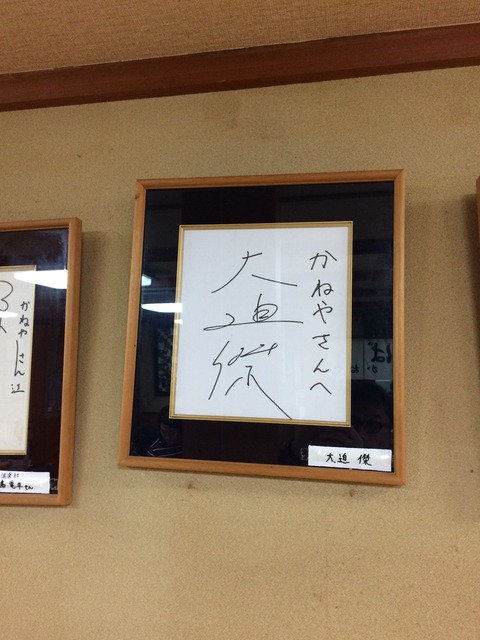 かねやさんへ
大迫
傑
大迫 傑
かねやさん江